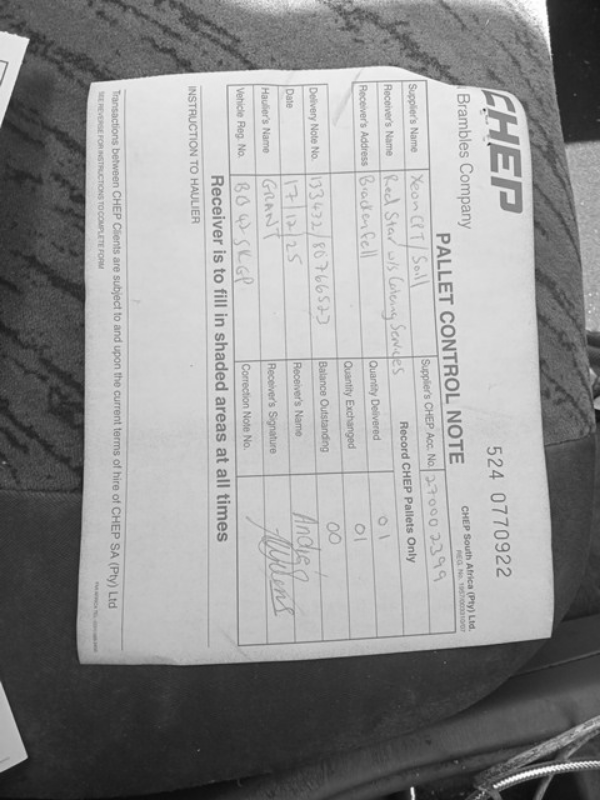 CHEP
Brambles Company
524 0770922
PALLET CONTROL NOTE
CHEP South Africa (Pty) Ltd.
Supplier's Name
Supplier's CHEP Acc. No. 270002399
Receiver's Name Red Star
Record CHEP Pallets Only
Receiver's Address Brackenfell
Quantity Delivered 01
Quantity Exchanged 01
Delivery Note No.
Balance Outstanding 00
Date 17/12/25
Receiver's Name
Haulier's Name GRANT
Receiver's Signature
Vehicle Reg. No.
Correction Note No.
Receiver is to fill in shaded areas at all times
INSTRUCTION TO HAULIER
Transactions between CHEP Clients are subject to and upon the current terms of hire of CHEP SA (Pty) Ltd
SEE REVERSE FOR INSTRUCTIONS TO COMPLETE FORM